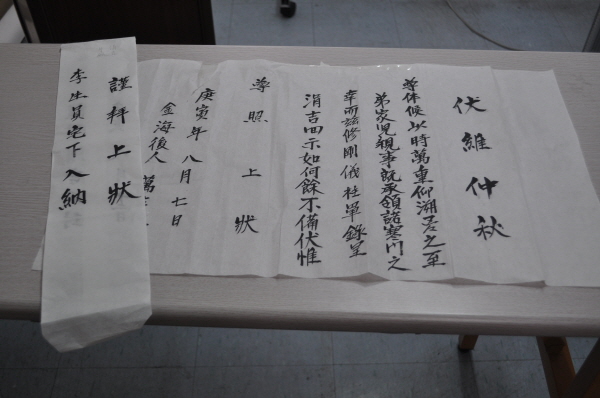 伏維仲秋
尊体候以時萬重仰溯之至
弟家児親事既承領諾寒門之
幸而玆修剛儀柱單錄呈
涓吉回示如何餘不備伏惟
尊照 上狀
庚寅年 八月 七日
金海後人 萬
謹拜上狀
李生員宅下入納